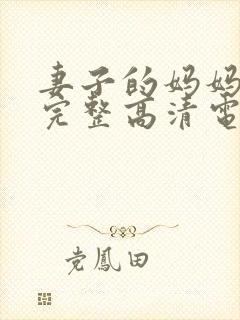 妻子的妈妈
完整高清電
党鳳田